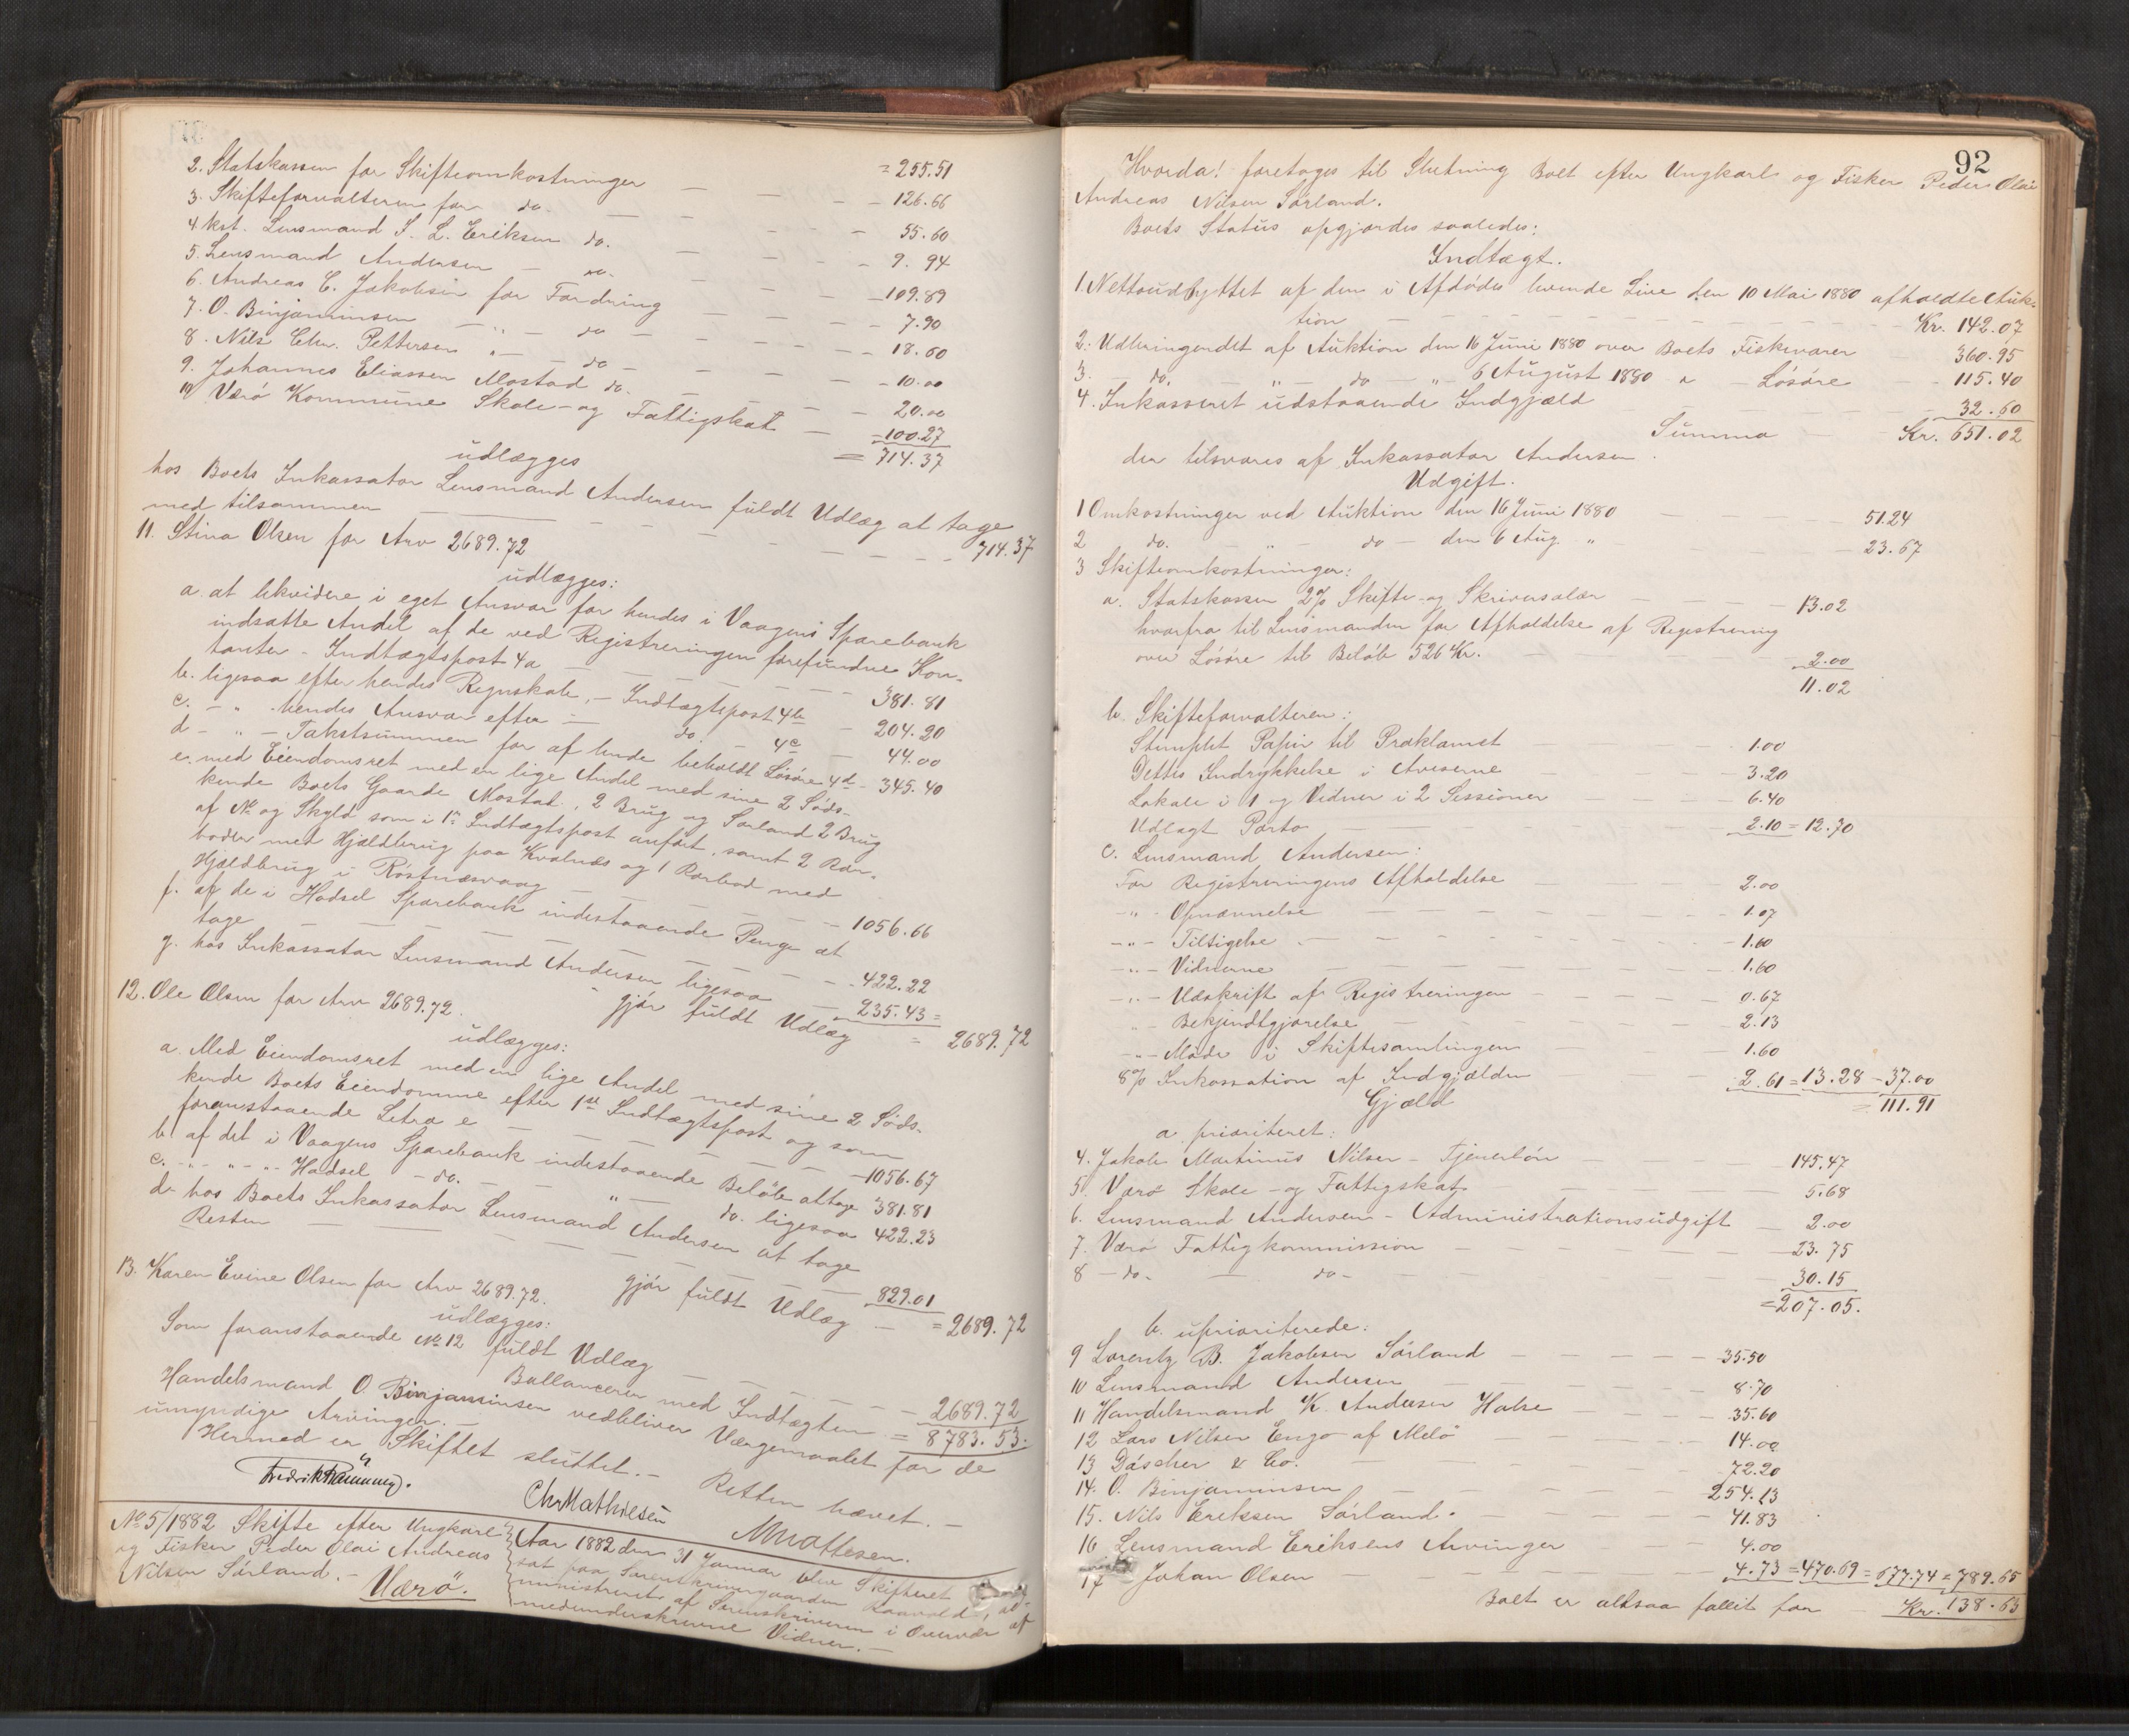 2. Statskassen for Skifteomkostninger — — = 255.51
3. Skifteforvalteren for do. — — — 126.66
4. Kst. Lensmand S. L. Eriksen do. — — — 55.60
5. Lensmand Andersen — do. — — — 9.94
6. Andreas C. Jakobsen for Fordring — — — 109.89
7. O. Binjaminsen — " — do — — — 7.90
8. Nils Chr. Pettersen " — do — — — 18.60
9. Johannes Eliassen Mostad do. — — — 10.00
10 Værö Kommune Skole- og Fattigskat — 20.00
— 100.27
= 714.37
udlægges
hos Boets Inkassator Lensmand Andersen fuldt Udlæg at tage
med tilsammen — — — 714.37
11. Stina Olsen for Arv 2689.72
udlægges:
a. at likvidere i eget Ansvar for hendes i Vaagens Sparebank
indsatte Andel af de ved Registreringen forefundne Kon-
tanter - Indtægtspost 4a — — — 381.81
b. ligesaa efter hendes Regnskab, - Indtægtspost 4b — 204.20
c. — " — hendes Ansvar efter — do. — 4c — 44.00
d — " — Takstsummen for af hende beholdt Lösöre 4d - 345.40
e. med Eiendomsret med en lige Andel med sine 2 Söds-
kende Boets Gaarde Mostad, 2 Brug og Sorland 2 Brug
af No og Skyld som i 1ste Indtægtspost anfört, samt 2 Ror-
boder med Hjældbrug paa Kvalnæs og 1 Rorbod med
Hjældbrug i Röstnæsvaag — — — 1056.66
f. af de i Hadsel Sparebank indestaaende Penge at
tage — — — 422.22
g. hos Inkassator Lensmand Andersen ligesaa — 235.43 =
gjör fuldt Udlæg = 2689.72
12. Ole Olsen for Arv 2689.72.
udlægges:
a. Med Eiendomsret med en lige Andel med sine 2 Söds-
kende Boets Eiendomme efter 1ste Indtægtspost og som
foranstaaende Litra e — — — 1056.67
b. af det i Vaagens Sparebank indestaaende Belöb at tage 381.81
c. - " - " - Hadsel - do. — " — do. ligesaa 422.23
d. hos Boets Inkassator Lensmand Andersen at tage
Resten — — — 829.01
gjör fuldt Udlæg — = 2689.72
13. Karen Evine Olsen for Arv 2689.72.
udlægges:
Som foranstaaende No 12 fuldt Udlæg — — — 2689.72
Ballancerer med Indtægten = 8783.53.
Handelsmand O. Binjaminsen vedbliver Værgemaalet for de
umyndige Arvinger. —
Hermed er Skiftet sluttet. — Retten hævet. —
Chr Mathiesen
No 5/1882 Skifte efter Ungkarl
og Fisker Peder Olai Andreas
Nilsen Sörland. —
Værö.
Aar 1882 den 31 Januar blev Skifteret
sat paa Sorenskrivergaarden
ministreret af Sorenskriveren i Overvær af
medunderskrevne Vidner. —
92
Hvorda! foretoges til Slutning Boet efter Ungkarl og Fisker Peder Olai
Andreas Nilsen Sörland.
Boets Status opgjordes saaledes:
Indtægt.
1. Nettoudbyttet af den i Afdödes levende Live den 10 Mai 1880 afholdte Auk-
tion — — — Kr. 142.07
2. Udbringendet af Auktion den 16 Juni 1880 over Boets Fiskevarer 360.95
3. do. — " — do — " — 6 August 1880 " — Lösöre — 115.40
4. Inkasseret udstaaende Indgjæld — — — 32.60
Summa — Kr. 651.02
der tilsvares af Inkassator Andersen.
Udgift.
1 Omkostninger ved Auktion den 16 Juni 1880 — — 51.24
2 do. — " — do — den 6 Aug. " — — 23.67
3 Skifteomkostninger:
a. Statskassen 2% Skifte- og Skriversalær — — — 13.02
hvorfra til Lensmanden for Afholdelse af Registrering
over Lösöre til Belöb 526 Kr. — — — 2.00
11.02
b. Skifteforvalteren:
Stemplet Papir til Proklamet — — 1.00
Dettes Indrykkelse i Aviserne — — 3.20
Lokale i 1 og Vidner i 2 Sessioner — — 6.40
Udlagt Porto — — — 2.10 = 12.70
c. Lensmand Andersen:
For Registreringens Afholdelse — — 2.00
— " — Opnævnelse — — — 1.07
— " — Tilsigelse — — — 1.60
— " — Vidnerne — — — 1.60
— " — Udskrift af Registreringen — — 0.67
" — Bekjendtgjörelse — — — 2.13
— " — Möde i Skiftesamlingen — — 1.60
8% Inkassation af Indgjælden — — 2.61 = 13.28 — 37.00
= 111.91
Gjæld
a. prioriteret:
4. Jakob Martinus Nilsen - Tjenerlön — — 145.47
5. Værö Skole- og Fattigskat — — — 5.68
6. Lensmand Andersen - Administrationsudgift — 2.00
7. Værö Fattigkommission — — — 23.75
8 — do. — do — — — 30.15
= 207.05.
b. uprioriterede:
9 Lorentz B. Jakobsen Sörland — — — 35.50
10 Lensmand Andersen — — — 8.70
11 Handelsmand K. Andersen Halse — — 35.60
12 Lars Nilsen Enga af Melö — — — 14.00
13 Dáscher & Co. — — — 72.20
14. O. Binjaminsen — — — 254.13
15. Nils Eriksen Sörland. — — — 41.83
16 Lensmand Eriksens Arvinger — — 4.00
17 Johan Olsen — — — 4.73 = 470.69 = 677.74 = 789.65
Boet er altsaa fallit for — Kr. 138.63